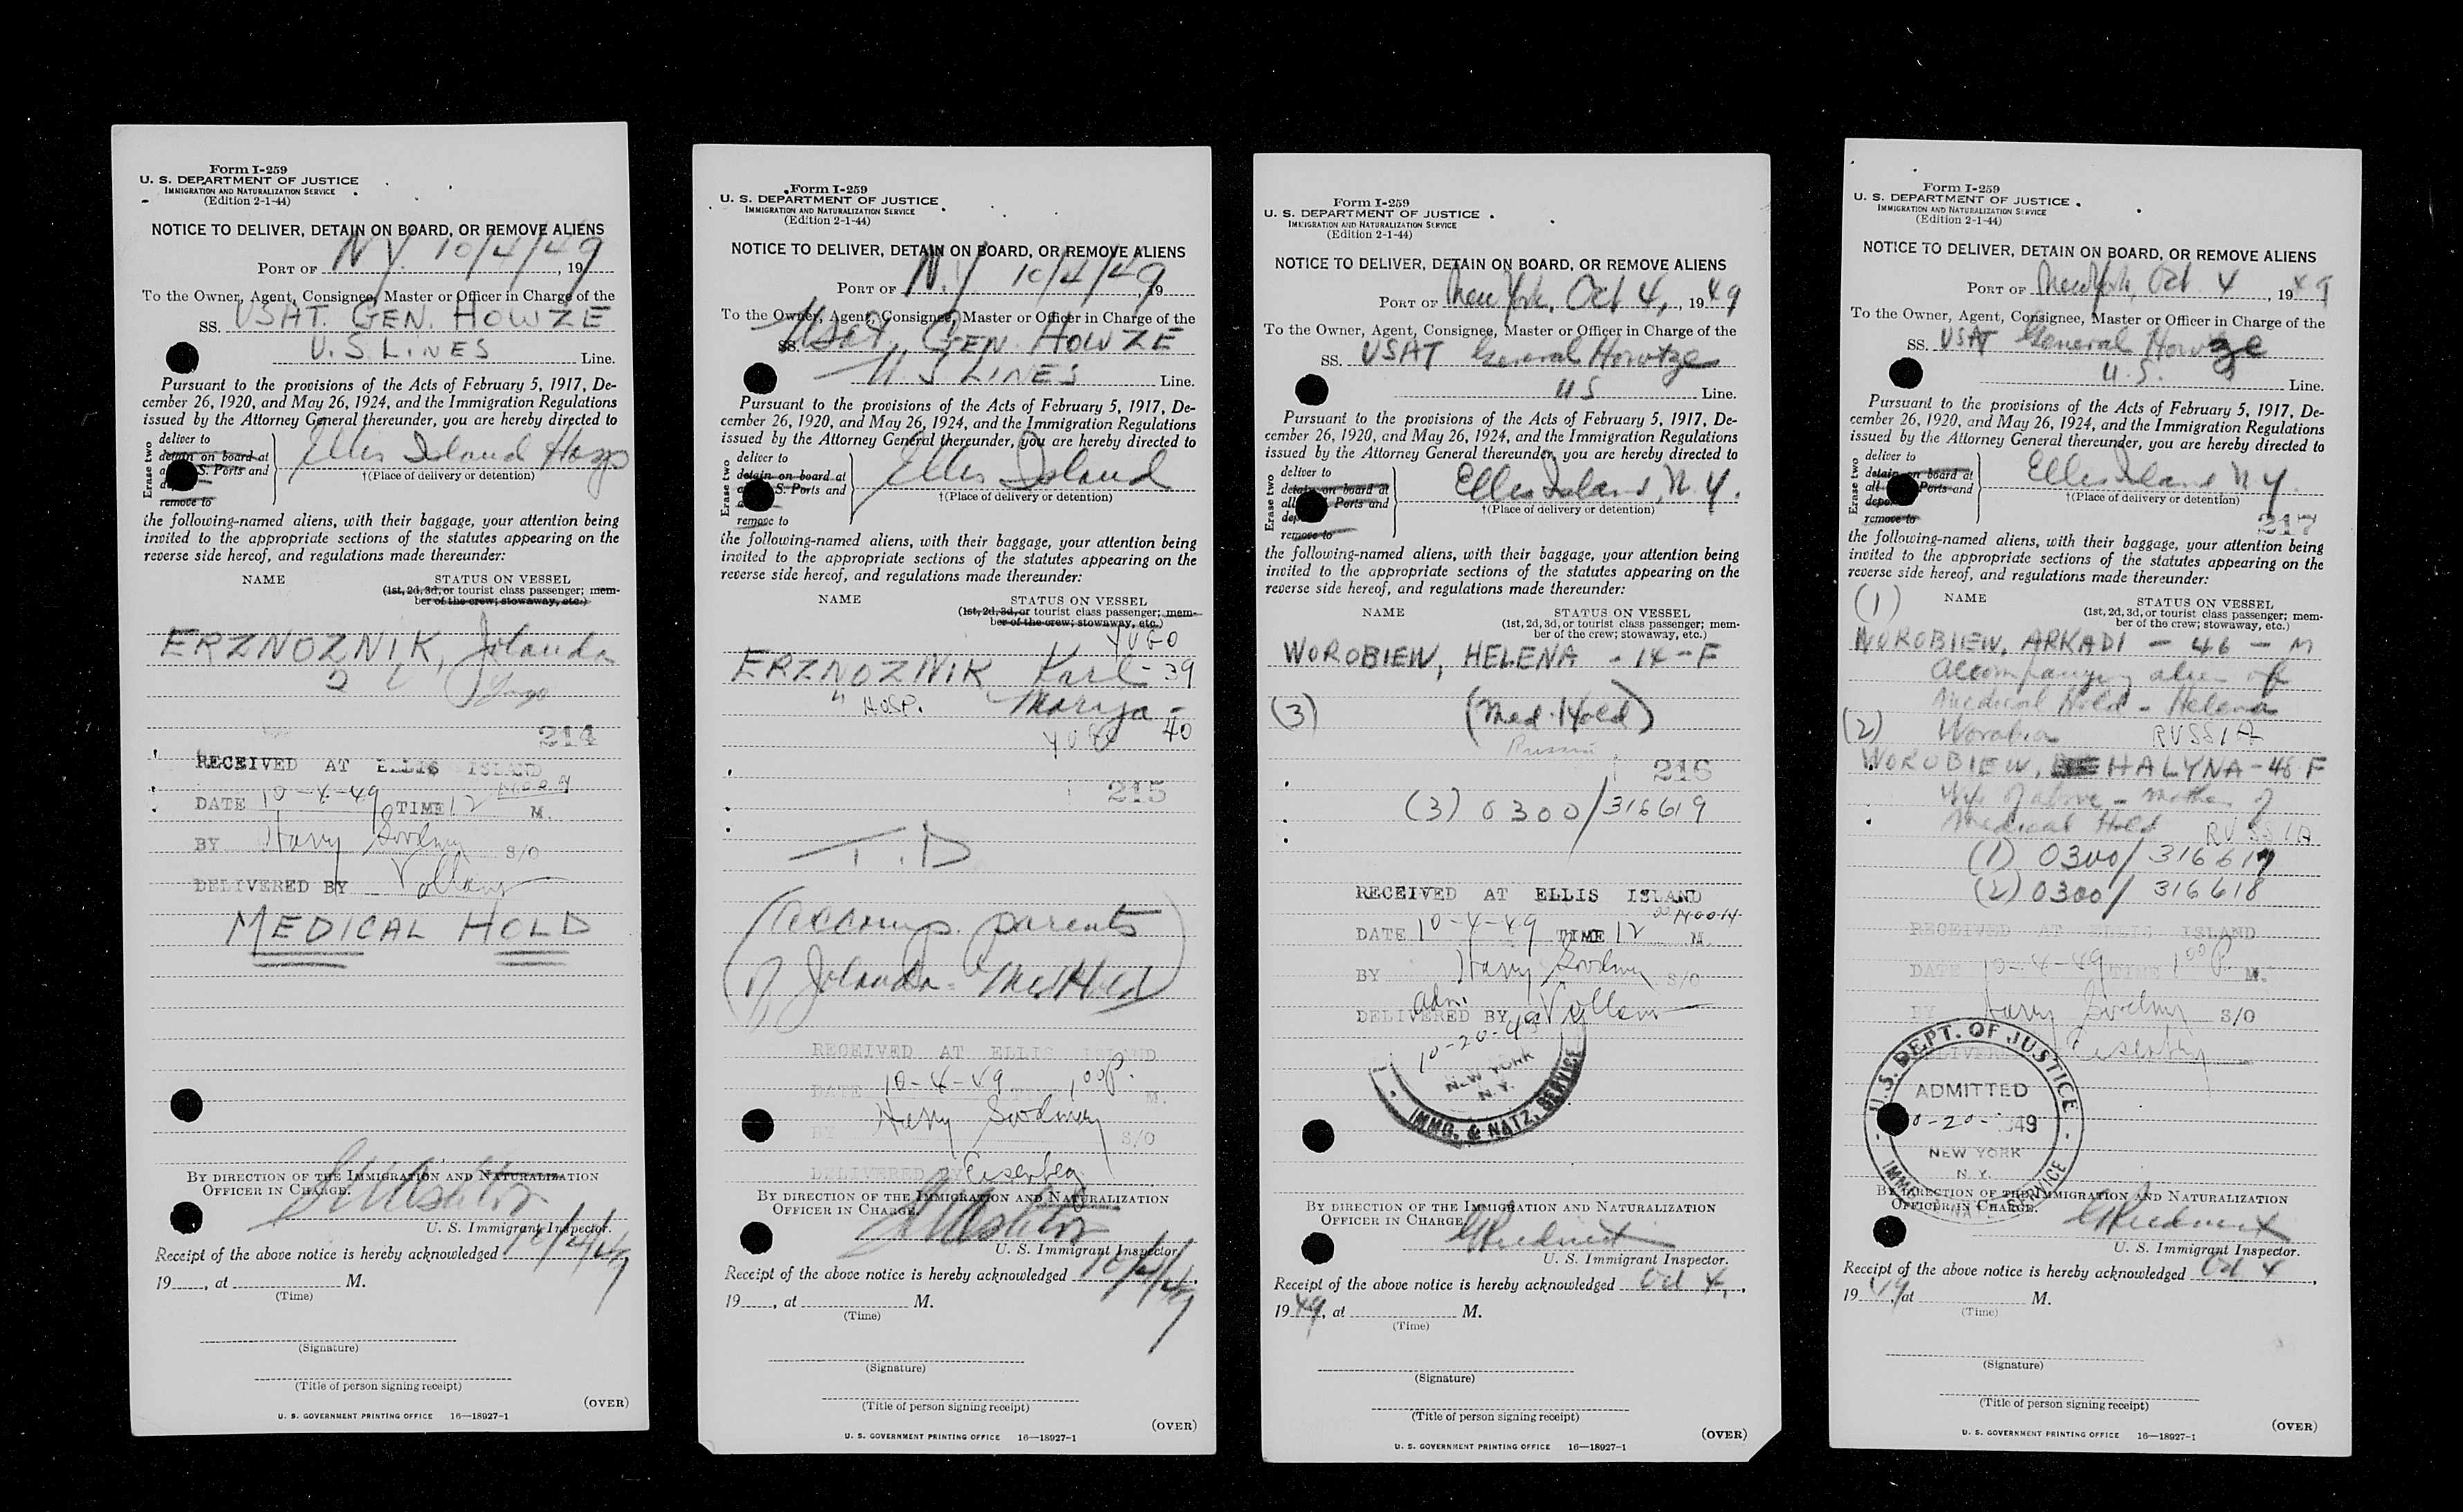 Form I-259
U. S. DEPARTMENT OF JUSTICE
IMMIGRATION AND NATURALIZATION SERVICE
(Edition 2-1-44)
NOTICE TO DELIVER, DETAIN ON BOARD, OR REMOVE ALIENS
PORT OF N.Y. 10/4/49, 19
To the Owner, Agent, Consignee, Master or Officer in Charge of the
SS. USAT. GEN. HOWZE
U.S. LINES Line.
Pursuant to the provisions of the Acts of February 5, 1917, De-
cember 26, 1920, and May 26, 1924, and the Immigration Regulations
issued by the Attorney General thereunder, you are hereby directed to
Erase two
deliver to
detain on board at
S. Ports and
remove to
Ellis Island Hosp
†(Place of delivery or detention)
the following-named aliens, with their baggage, your attention being
invited to the appropriate sections of the statutes appearing on the
reverse side hereof, and regulations made thereunder:
NAME STATUS ON VESSEL
(1st, 2d, 3d, or tourist class passenger; mem-
ber of the crew; stowaway, etc.)
ERZNOZNIK, Jolanda
2 Yugo
214
RECEIVED AT ELLIS ISLAND
DATE 10-4-49 TIME 12 M.
BY Harry S/O
DELIVERED BY
MEDICAL HOLD
BY DIRECTION OF THE IMMIGRATION AND NATURALIZATION
OFFICER IN CHARGE.
U. S. Immigrant Inspector.
Receipt of the above notice is hereby acknowledged 10/4/49
19, at M.
(Time)
(Signature)
(Title of person signing receipt)
(OVER)
U. S. GOVERNMENT PRINTING OFFICE 16—18927-1
Form I-259
U. S. DEPARTMENT OF JUSTICE
IMMIGRATION AND NATURALIZATION SERVICE
(Edition 2-1-44)
NOTICE TO DELIVER, DETAIN ON BOARD, OR REMOVE ALIENS
PORT OF N.Y 10/4/49, 19
To the Owner, Agent, Consignee, Master or Officer in Charge of the
SS. Usat. GEN. HOWZE
U S LINES Line.
Pursuant to the provisions of the Acts of February 5, 1917, De-
cember 26, 1920, and May 26, 1924, and the Immigration Regulations
issued by the Attorney General thereunder, you are hereby directed to
Erase two
deliver to
detain on board at
S. Ports and
remove to
Ellis Island
†(Place of delivery or detention)
the following-named aliens, with their baggage, your attention being
invited to the appropriate sections of the statutes appearing on the
reverse side hereof, and regulations made thereunder:
NAME STATUS ON VESSEL
(1st, 2d, 3d, or tourist class passenger; mem-
ber of the crew; stowaway, etc.)
YUGO
ERZNOZNIK Karl - 39
" HOSP. Marija - 40
YUGO
215
T.D
(Accomp. parents
of Jolanda - Med Hold)
RECEIVED AT ELLIS ISLAND
DATE 10-4-49 1 00 P. M.
BY Harry S/O
DELIVERED BY Eisenberg
BY DIRECTION OF THE IMMIGRATION AND NATURALIZATION
OFFICER IN CHARGE.
U. S. Immigrant Inspector.
Receipt of the above notice is hereby acknowledged 10/4/49,
19, at M.
(Time)
(Signature)
(Title of person signing receipt)
(OVER)
U. S. GOVERNMENT PRINTING OFFICE 16—18927-1
Form I-259
U. S. DEPARTMENT OF JUSTICE
IMMIGRATION AND NATURALIZATION SERVICE
(Edition 2-1-44)
NOTICE TO DELIVER, DETAIN ON BOARD, OR REMOVE ALIENS
PORT OF New York, Oct 4, 1949
To the Owner, Agent, Consignee, Master or Officer in Charge of the
SS. USAT General Howtze
US Line.
Pursuant to the provisions of the Acts of February 5, 1917, De-
cember 26, 1920, and May 26, 1924, and the Immigration Regulations
issued by the Attorney General thereunder, you are hereby directed to
Erase two
deliver to
detain on board at
all Ports and
remove to
Ellis Island, N.Y.
†(Place of delivery or detention)
the following-named aliens, with their baggage, your attention being
invited to the appropriate sections of the statutes appearing on the
reverse side hereof, and regulations made thereunder:
NAME STATUS ON VESSEL
(1st, 2d, 3d, or tourist class passenger; mem-
ber of the crew; stowaway, etc.)
WOROBIEW, HELENA - 14 - F
(3) (Med. Hold)
Russia
216
(3) 0300/316619
RECEIVED AT ELLIS ISLAND
DATE 10-4-49 TIME 12 M.
BY Harry S/O
Adm.
DELIVERED BY
10-20-49
NEW YORK
N.Y.
IMMG. & NATZ. SERVICE
BY DIRECTION OF THE IMMIGRATION AND NATURALIZATION
OFFICER IN CHARGE.
U. S. Immigrant Inspector.
Receipt of the above notice is hereby acknowledged Oct 4,
1949, at M.
(Time)
(Signature)
(Title of person signing receipt)
(OVER)
U. S. GOVERNMENT PRINTING OFFICE 16—18927-1
Form I-259
U. S. DEPARTMENT OF JUSTICE
IMMIGRATION AND NATURALIZATION SERVICE
(Edition 2-1-44)
NOTICE TO DELIVER, DETAIN ON BOARD, OR REMOVE ALIENS
PORT OF New York, Oct. 4, 1949
To the Owner, Agent, Consignee, Master or Officer in Charge of the
SS. USAT General Howze
U.S. Line.
Pursuant to the provisions of the Acts of February 5, 1917, De-
cember 26, 1920, and May 26, 1924, and the Immigration Regulations
issued by the Attorney General thereunder, you are hereby directed to
Erase two
deliver to
detain on board at
all Ports and
remove to
Ellis Island N.Y.
†(Place of delivery or detention)
217
the following-named aliens, with their baggage, your attention being
invited to the appropriate sections of the statutes appearing on the
reverse side hereof, and regulations made thereunder:
(1) NAME STATUS ON VESSEL
(1st, 2d, 3d, or tourist class passenger; mem-
ber of the crew; stowaway, etc.)
WOROBIEW, ARKADI - 46 - M
Accompanying alien of
Medical Hold - Helena
(2) RUSSIA
WOROBIEW, HALYNA - 46 F
Wife of above - mother of
Medical Hold RUSSIA
(1) 0300/316617
(2) 0300/316618
RECEIVED AT ELLIS ISLAND
DATE 10-4-49 TIME 1 00 P. M.
BY Harry S/O
DELIVERED Eisenberg
U.S. DEPT. OF JUSTICE
ADMITTED
0-20-1949
NEW YORK
N. Y.
IMMG. & NATZ. SERVICE
BY DIRECTION OF THE IMMIGRATION AND NATURALIZATION
OFFICER IN CHARGE.
U. S. Immigrant Inspector.
Receipt of the above notice is hereby acknowledged Oct 4,
1949, at M.
(Time)
(Signature)
(Title of person signing receipt)
(OVER)
U. S. GOVERNMENT PRINTING OFFICE 16—18927-1